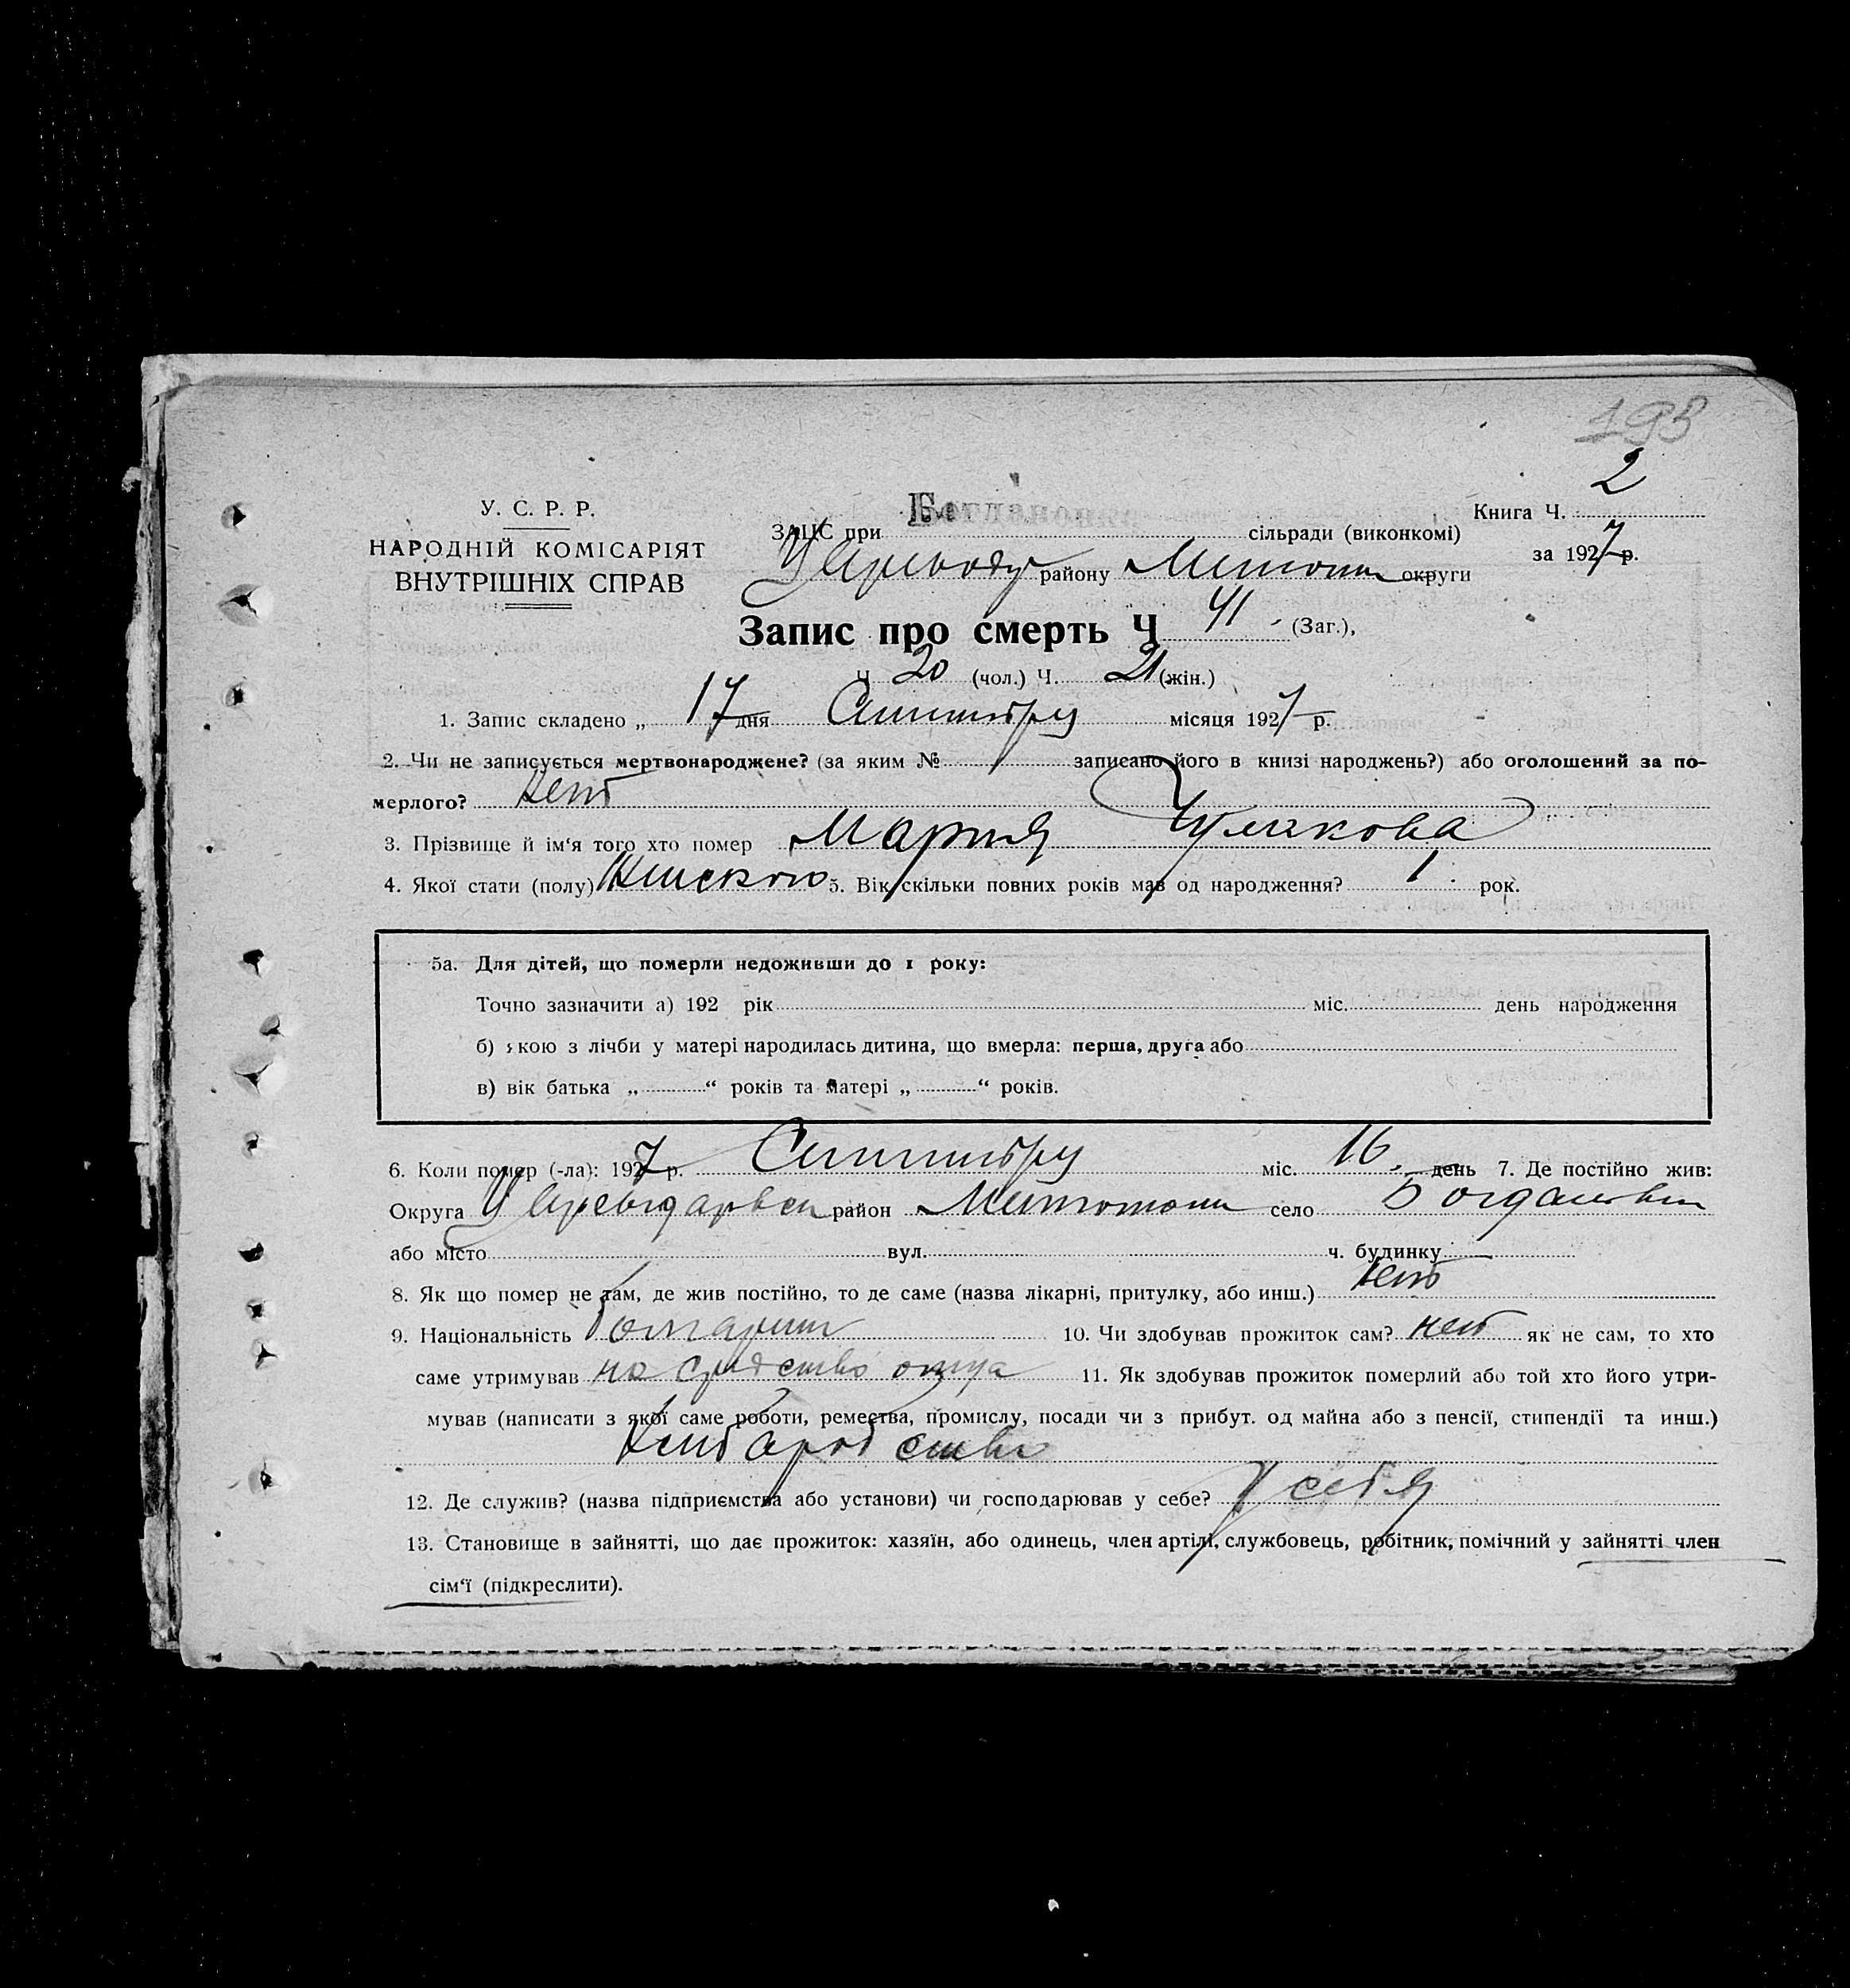 193
У. С. Р. Р.
НАРОДНІЙ КОМІСАРІЯТ
ВНУТРІШНІХ СПРАВ
ЗАЦС при Богдановка сільради (виконкомі)
району Мелитоп округи
Книга Ч. 2
за 1927 р.
Запис про смерть Ч 41 (Заг.),
Ч 20 (чол.) Ч. 21 (жін.)
1. Запис складено „ 17 дня Сентября місяця 1927 р.
2. Чи не записується мертвонароджене? (за яким № записано його в книзі народжень?) або оголошений за по-
мерлого? нет
3. Прізвище й ім‘я того хто помер Мария Чулакова
4. Якої стати (полу) Женского 5. Вік скільки повних років мав од народження? 1 рок.
5а. Для дітей, що померли недоживши до 1 року:
Точно зазначити а) 192 рік міс. день народження
б) якою з лічби у матері народилась дитина, що вмерла: перша, друга або
в) вік батька „ “ років та матері „ “ років.
6. Коли помер (-ла): 1927 р. Сентября міс. 16 день 7. Де постійно жив:
Округа район Мелитопол село Богдановка
або місто вул. ч. будинку
8. Як що помер не там, де жив постійно, то де саме (назва лікарні, притулку, або инш.) нет
9. Національність болгарин 10. Чи здобував прожиток сам? нет як не сам, то хто
саме утримував на средство отца 11. Як здобував прожиток померлий або той хто його утри-
мував (написати з якої саме роботи, ремества, промислу, посади чи з прибут. од майна або з пенсії, стипендії та инш.)
Хлебародство
12. Де служив? (назва підприємства або установи) чи господарював у себе? У себя
13. Становище в зайнятті, що дає прожиток: хазяїн, або одинець, член артілі, службовець, робітник, помічний у зайнятті член
сім‘ї (підкреслити).